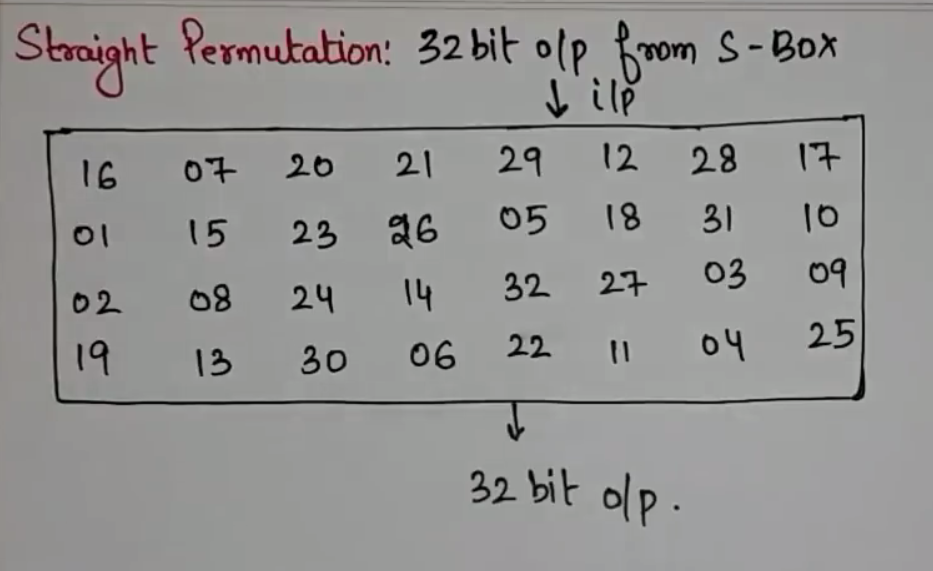 Straight Permutation: 32 bit o/p from S-Box
↓ i/p
16 07 20 21 29 12 28 17
01 15 23 26 05 18 31 10
02 08 24 14 32 27 03 09
19 13 30 06 22 11 04 25
↓
32 bit o/p.